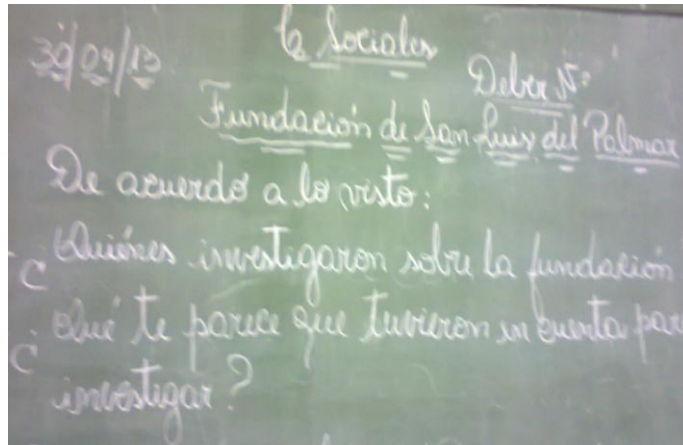 30/09/13 C. Sociales
Deber N°
Fundación de San Luis del Palmar
De acuerdo a lo visto:
¿Quiénes investigaron sobre la fundación
¿Qué te parece que tuvieron en cuenta par
investigar?